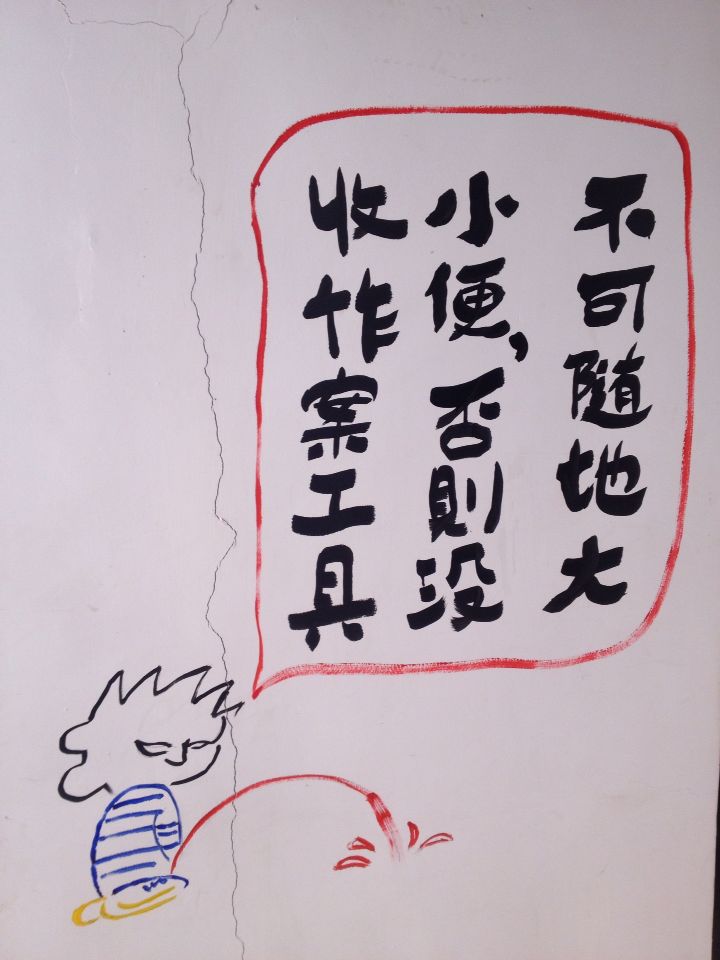 不可隨地大
小便，否則没
收作案工具